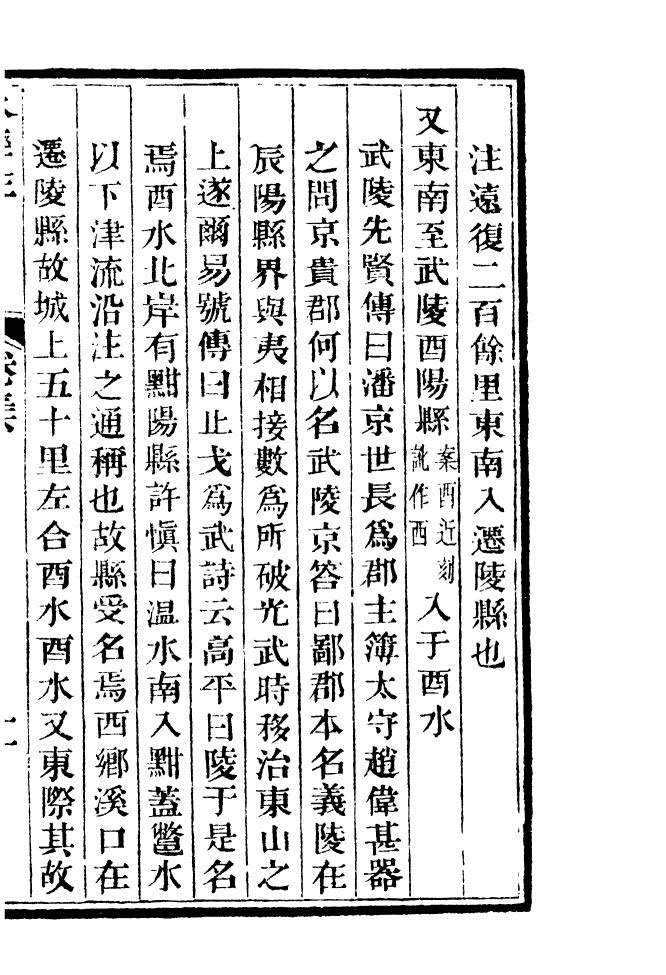 注遠復二百餘里東南入遷陵縣也
又東南至武陵酉陽縣案酉近刻訛作西入于酉水
武陵先賢傳曰潘京世長爲郡主簿太守趙偉甚器
之問京貴郡何以名武陵京答曰鄙郡本名義陵在
辰陽縣界與夷相接數爲所破光武時移治東山之
上遂爾易號傳曰止戈爲武詩云高平曰陵于是名
焉酉水北岸有黚陽縣許愼曰温水南入黚蓋鷩水
以下津流沿注之通稱也故縣受名焉西鄉溪口在
遷陵縣故城上五十里左合酉水酉水又東際其故